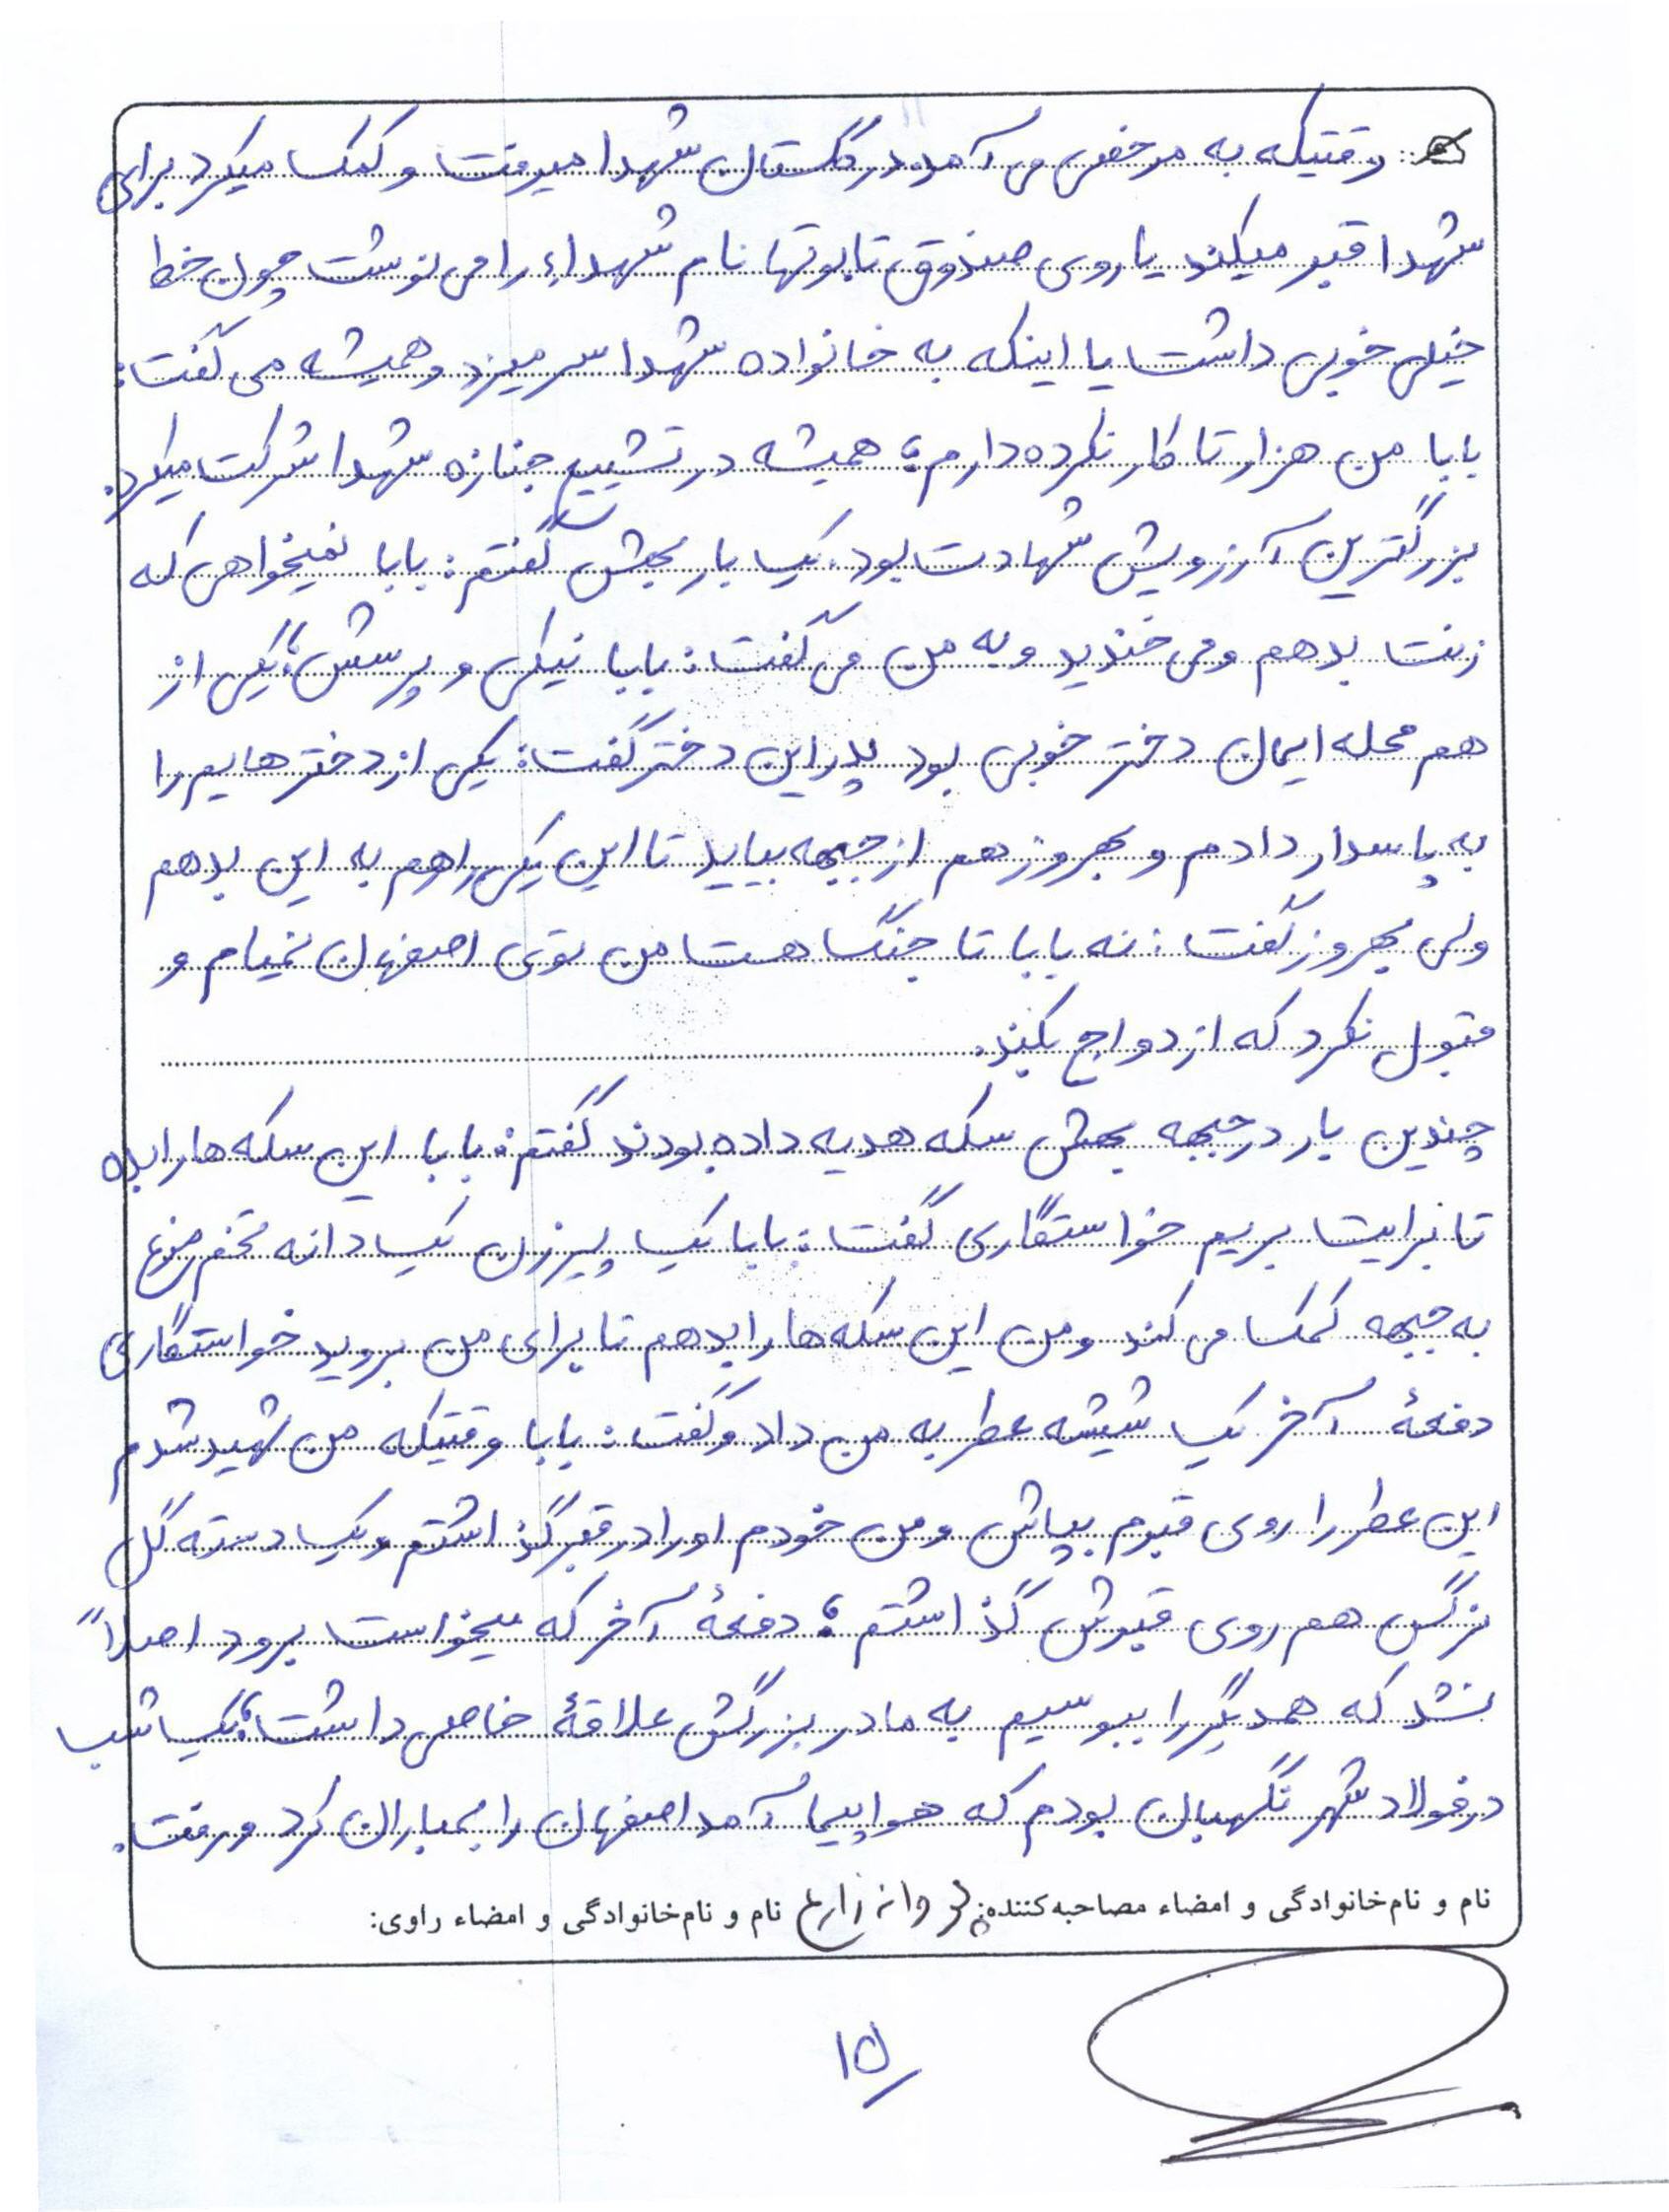 وقتیکه به مرخصی می آمد در گلستان شهدا میرفت و کمک میکرد برای
شهدا قبر میکند یا روی صندوق تابوتها نام شهداء را می نوشت چون خط
خیلی خوبی داشت یا اینکه به خانواده شهدا سر میزد و همیشه می گفت:
بابا من هزار تا کار نکرده دارم؛ همیشه در تشییع جنازه شهدا شرکت میکرد.
بزرگترین آرزویش شهادت بود. یک بار بهش گفتم: بابا نمیخواهی که
زنت بدهم و می خندید و به من می گفت: بابا نیکی و پرسش؛ یکی از
هم محله ایمان دختر خوبی بود پدر این دختر گفت: یکی از دخترهایم را
به پاسدار دادم و بهروز هم از جبهه بیاید تا این یکی را هم به این بدهم
ولی بهروز گفت: نه بابا تا جنگ هست من توی اصفهان نمیام و
قبول نکرد که ازدواج بکند.
چندین بار در جبهه بهش سکه هدیه داده بودند گفتم: بابا این سکه ها را بده
تا برایت بریم خواستگاری گفت: بابا یک پیرزن یک دانه تخم مرغ
به جبهه کمک می کند و من این سکه ها را بدهم تا برای من بروید خواستگاری
دفعۀ آخر یک شیشه عطر به من داد و گفت: بابا وقتیکه من شهید شدم
این عطر را روی قبرم بپاش و من خودم او را در قبر گذاشتم و یک دسته گل
نرگس هم روی قبرش گذاشتم؛ دفعۀ آخر که میخواست برود اصلاً
نشد که همدیگر را ببوسیم به مادر بزرگش علاقۀ خاصی داشت؛ یک شب
در فولاد شهر نگهبان بودم که هواپیما آمد اصفهان را بمباران کرد و رفت.
نام و نام‌خانوادگی و امضاء مصاحبه‌کننده: پروانه زارع نام و نام‌خانوادگی و امضاء راوی:
۱۵